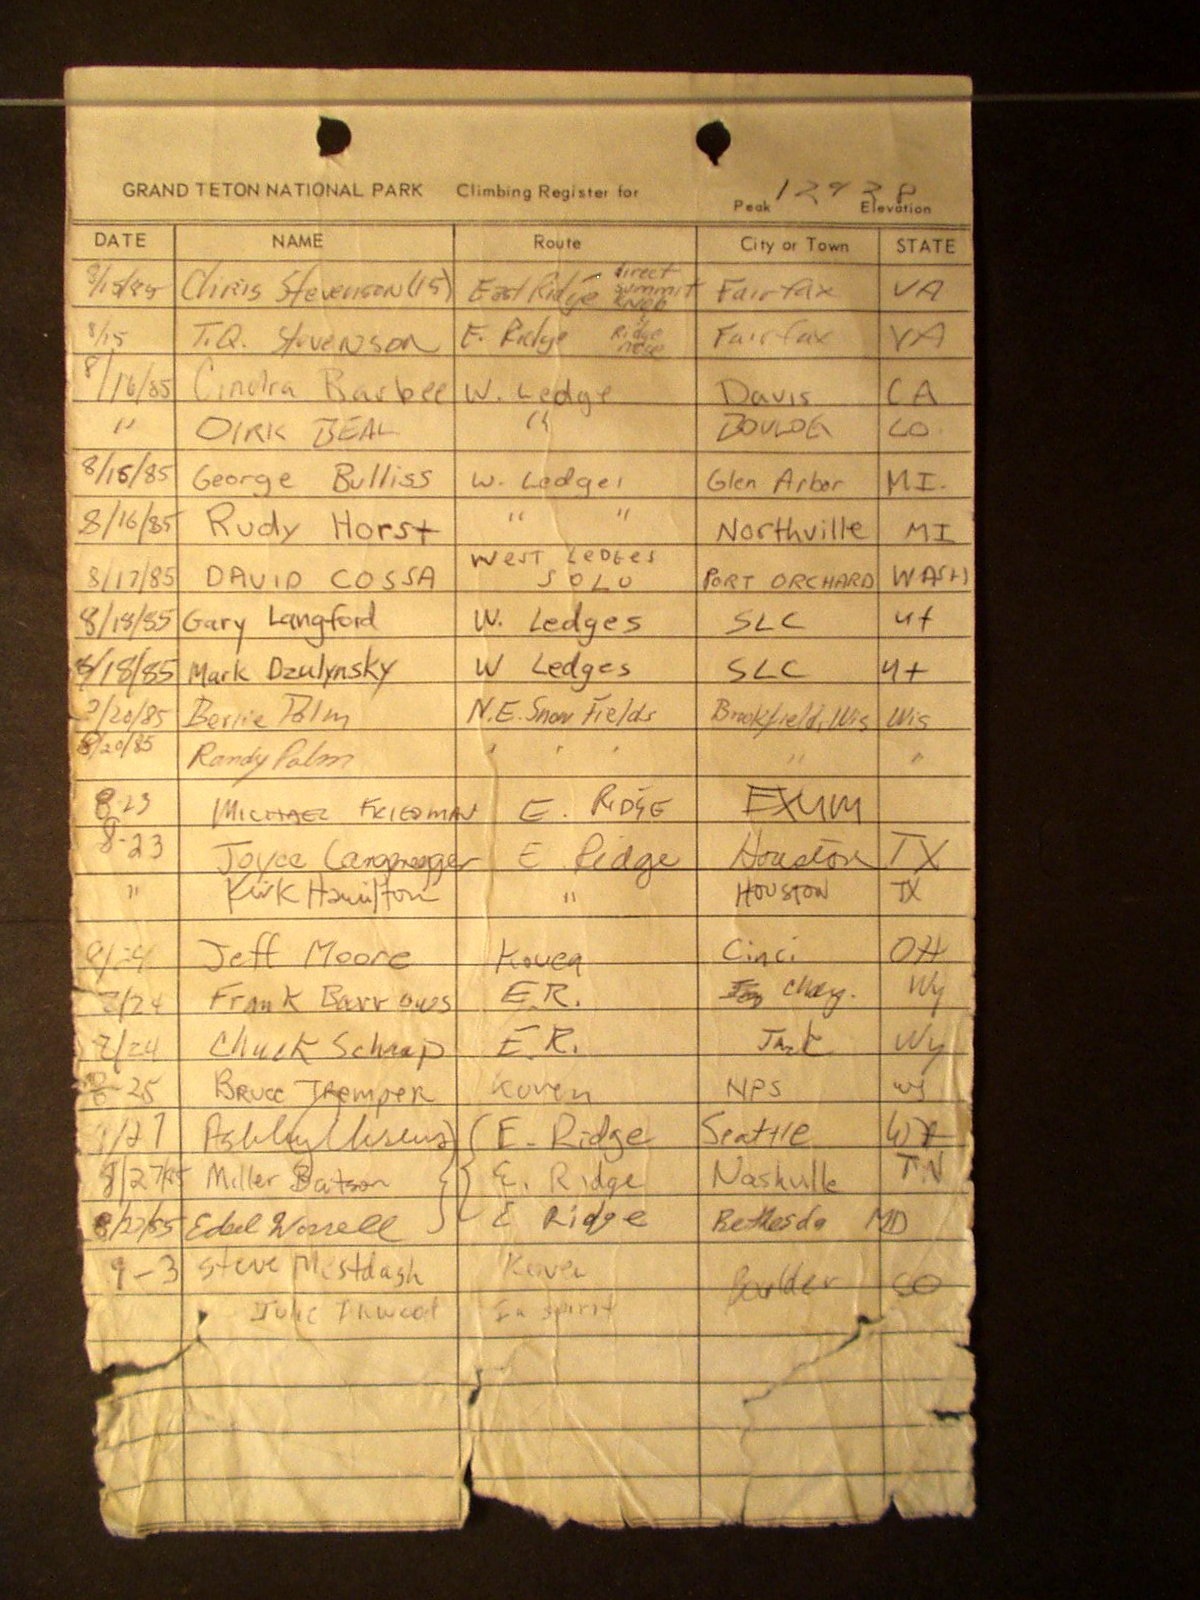 GRAND TETON NATIONAL PARK Climbing Register for Peak 1292 Elevation
DATE NAME Route City or Town STATE
8/15/85 Chris Stevenson (15) East Ridge direct summit knob Fairfax VA
8/15 T.Q. Stevenson E. Ridge Ridge Fairfax VA
8/16/85 Cindra Barbee W. Ledge Davis CA
" DIRK BEAL " CO
8/15/85 George Bulliss W. Ledges Glen Arbor MI.
8/16/85 Rudy Horst " " Northville MI
8/17/85 DAVID COSSA WEST LEDGES SOLO PORT ORCHARD WASH
8/18/85 Gary Langford W. Ledges SLC ut
8/18/85 Mark Dzulynsky W Ledges SLC ut
8/20/85 Bernie Palm N.E. Snow Fields Brookfield, Wis Wis
8/20/85 Randy Palm " " " " "
8-23 MICHAEL FRIEDMAN E. RIDGE EXUM
8-23 Joyce E Ridge Houston TX
" Kirk Hamilton " HOUSTON TX
8/24 Jeff Moore Koven Cinci OH
8/24 Frank Barrows E.R. Chey. Wy
8/24 Chuck Schaap E.R. Jack Wy
8-25 BRUCE TREMPER Koven NPS wy
8/27 Ashby E. Ridge Seattle WA
8/27/85 Miller Batson E. Ridge Nashville TN
8/27/85 Edel Worrell E Ridge Bethesda MD
9-3 Steve Mestdagh Koven Boulder CO
Julie Inwood In spirit